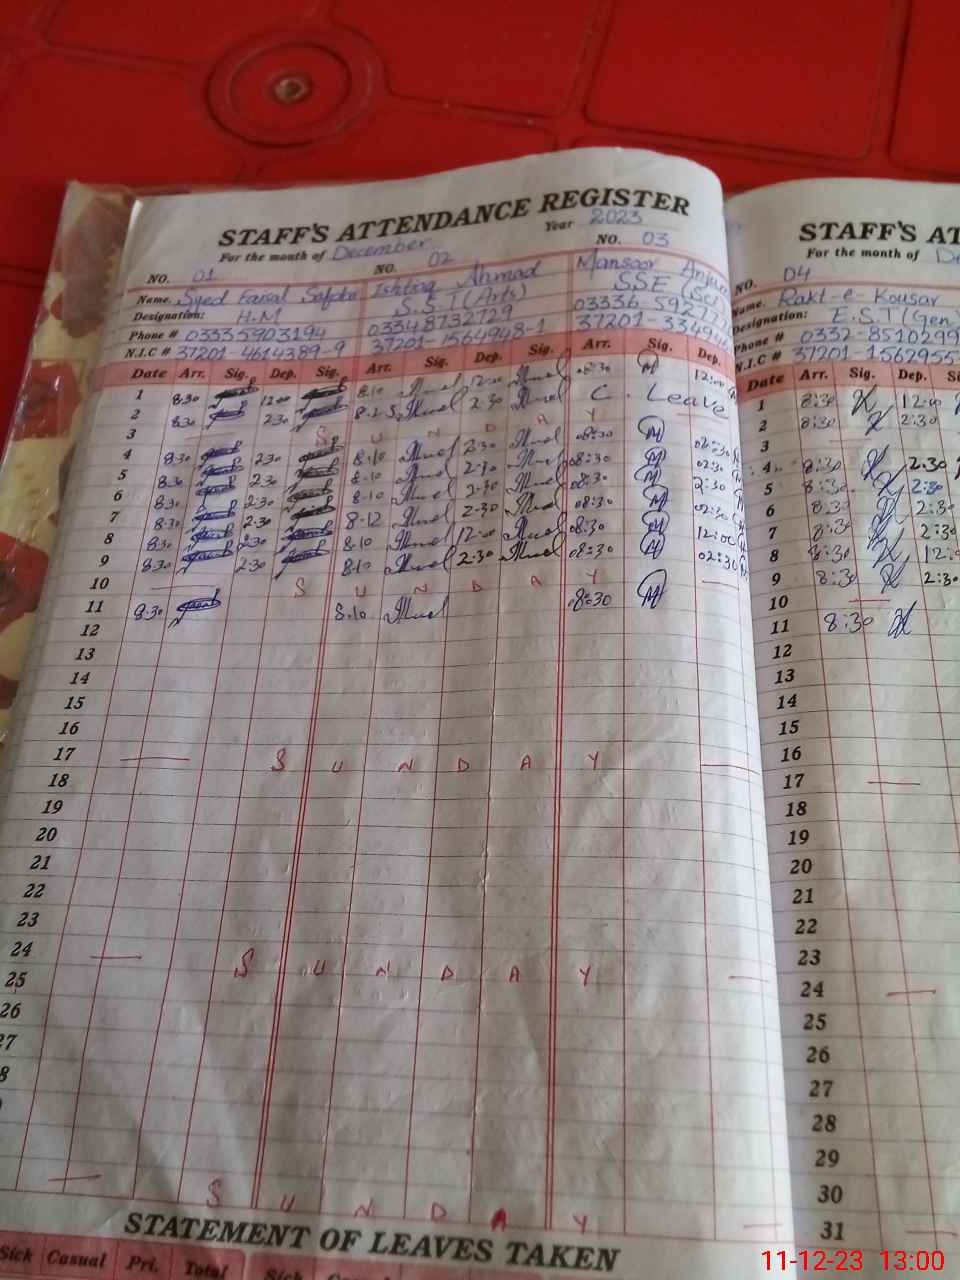 STAFF'S ATTENDANCE REGISTER
For the month of December Year 2023
NO. 01 NO. 02 NO. 03
Name. Syed Faisal Ishtiaq Ahmad Mansoor Anjum
Designation: H.M S.S.T (Arts) SSE (Sci
Phone # 03335903194 03348732729 03336-592777
N.I.C # 37201-4614389-9 37201-1564948-1 37201-3349
Date Arr. Sig. Dep. Sig. Arr. Sig. Dep. Sig. Arr. Sig. Dep.
1 8:30 12:00 8:10 12:00 08:30 12:00
2 8:30 2:30 8-25 2:30 C. Leave
3 S U N D A Y
4 8:30 2:30 8-10 2:30 08:30 02:30
5 8:30 2:30 8-10 2:30 08:30 02:30
6 8:30 2:30 8-10 2:30 08:30 2:30
7 8:30 2:30 8-12 2:30 08:30 02:30
8 8:30 2:30 8:10 12:00 08:30 12:00
9 8:30 2:30 8:10 2:30 08:30 02:30
10 S U N D A Y
11 8:30 8.10 08:30
12
13
14
15
16
17 S U N D A Y
18
19
20
21
22
23
24 S U N D A Y
25
26
27
8
S U N D A Y
STATEMENT OF LEAVES TAKEN
Sick Casual Pri. Total Sick
STAFF'S AT
For the month of De
NO. 04
Name. Rakt-e Kousar
Designation: E.S.T (Gen)
Phone # 0332-8510299
N.I.C # 37201-1562955
Date Arr. Sig. Dep. Si
1 8:30 12:00
2 8:30 2:30
3
4 8:30 2:30
5 8:30 2:30
6 8:30 2:3
7 8:30 2:30
8 8:30 12:
9 8:30 2:30
10
11 8:30
12
13
14
15
16
17
18
19
20
21
22
23
24
25
26
27
28
29
30
31
11-12-23 13:00